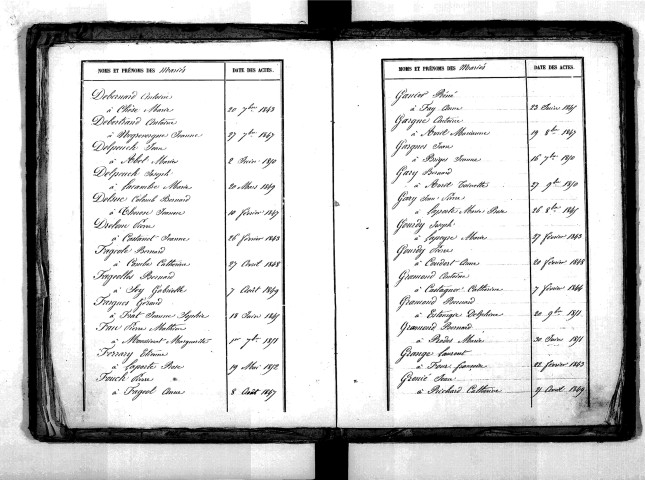 NOMS ET PRÉNOMS DES Mariés DATE DES ACTES.
Debernard Antoine
à Chèze Marie 20 7bre 1843
Debertrand Antoine
à Negrevergne Jeanne 27 7bre 1847
Delpouch Jean
à Abot Marie 2 Juin 1850
Delpouch Joseph
à Lacambre Marie 20 Mars 1849
Delsuc Colomb Bernard
à Jeanne 10 février 1847
Pierre
à Castanet Jeanne 26 février 1843
Bernard
à Combe Catherine 27 Avril 1848
Fageolles Bernard
à Gabrielle 7 Août 1849
Fargues Géraud
à Jeanne Sophie 18 Juin 1845
Fau Pierre Mathieu
à Marguerite 1er 7bre 1851
Ferrary Etienne
à Laporte Rose 19 Mai 1852
Fouch Pierre
à Fageol Anne 8 Août 1847
NOMS ET PRÉNOMS DES Mariés DATE DES ACTES.
Ganier René
à Fay Anne 23 Juin 1845
Gargne Antoine
à Marianne 19 8bre 1847
Gargues Jean
à Jeanne 16 7bre 1850
Gary Bernard
à Toinette 27 9bre 1850
Gary Jean Pierre
à Laporte Marie Rose 26 8bre 1845
Gourdy Joseph
à Marie 27 février 1843
Gourdy Pierre
à Anne 20 février 1848
Gramond Antoine
à Castagner Catherine 7 février 1844
Gramond Bernard
à Delphine 20 9bre 1851
Gramond Bernard
à Rodes Marie 30 Juin 1851
Grange Laurent
à Françoise 22 février 1843
Jean
à Richard Catherine 21 Avril 1849